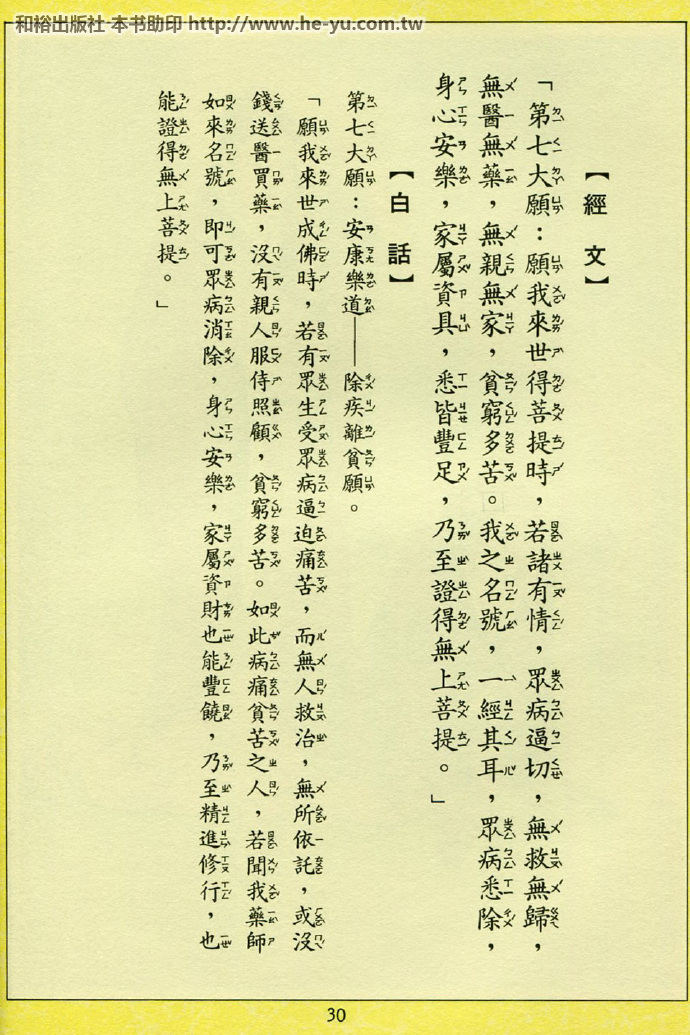 和裕出版社 本书助印 http://www.he-yu.com.tw
【經文】
「第七大願：願我來世得菩提時，若諸有情，眾病逼切，無救無歸，
無醫無藥，無親無家，貧窮多苦。我之名號，一經其耳，眾病悉除，
身心安樂，家屬資具，悉皆豐足，乃至證得無上菩提。」
【白話】
第七大願：安康樂道——除疾離貧願。
「願我來世成佛時，若有眾生受眾病逼迫痛苦，而無人救治，無所依託，或沒
錢送醫買藥，沒有親人服侍照顧，貧窮多苦。如此病痛貧苦之人，若聞我藥師
如來名號，即可眾病消除，身心安樂，家屬資財也能豐饒，乃至精進修行，也
能證得無上菩提。」
30